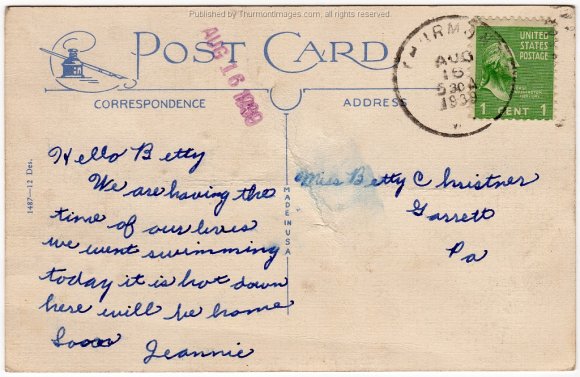 Published by Thurmontimages.com, all rights reserved
POST CARD
AUG 16
CORRESPONDENCE
ADDRESS
THURMO
AUG
16
30
193
UNITED
STATES
POSTAGE
1 CENT 1
Hello Betty
We are having the
time of our lives
we went swimming
today it is hot down
here will be home
Soon
Jeannie
1487—12 Des.
MADE IN USA
Miss Betty Christner
Garrett
Pa